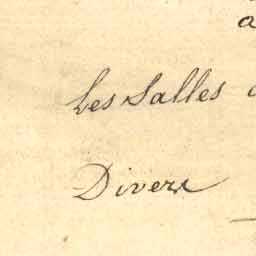 a
Les Salles
Divers